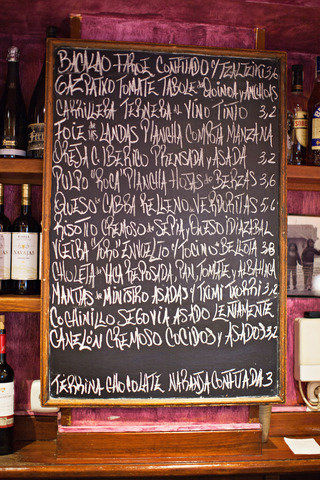 BACALAO FARCE CONFITADO Y TZATZIKI 3,6
GAZPATXO TOMATE TABOLE DE QUINOA Y ANCHOAS
CARRILLERA TERNERA AL VINO TINTO 3,2
FOIE DE LAS LANDAS PLANCHA COMPOTA MANZANA
OREJA C. IBERICO PRENSADA Y ASADA 3,2
PULPO "ROCA" PLANCHA HOJAS DE BERZAS 3,6
QUESO DE CABRA RELLENO DE VERDURITAS
RISOTTO CREMOSO DE SEPIA, QUESO IDIAZABAL
VIEIRA "TORO" ENVUELTO Y TOCINO BELLOTA 3,8
CHULETA DE VACA REPOSADA, PAN, TOMATE Y ALBAHACA
MANITAS DE MINISTRO ASADAS Y TXIMITXURRI 3,2
COCHINILLO SEGOVIA ASADO LENTAMENTE
CANELON CREMOSO COCIDOS Y ASADOS 3,2
TERRINA CHOCOLATE NARANJA CONFITADA 3